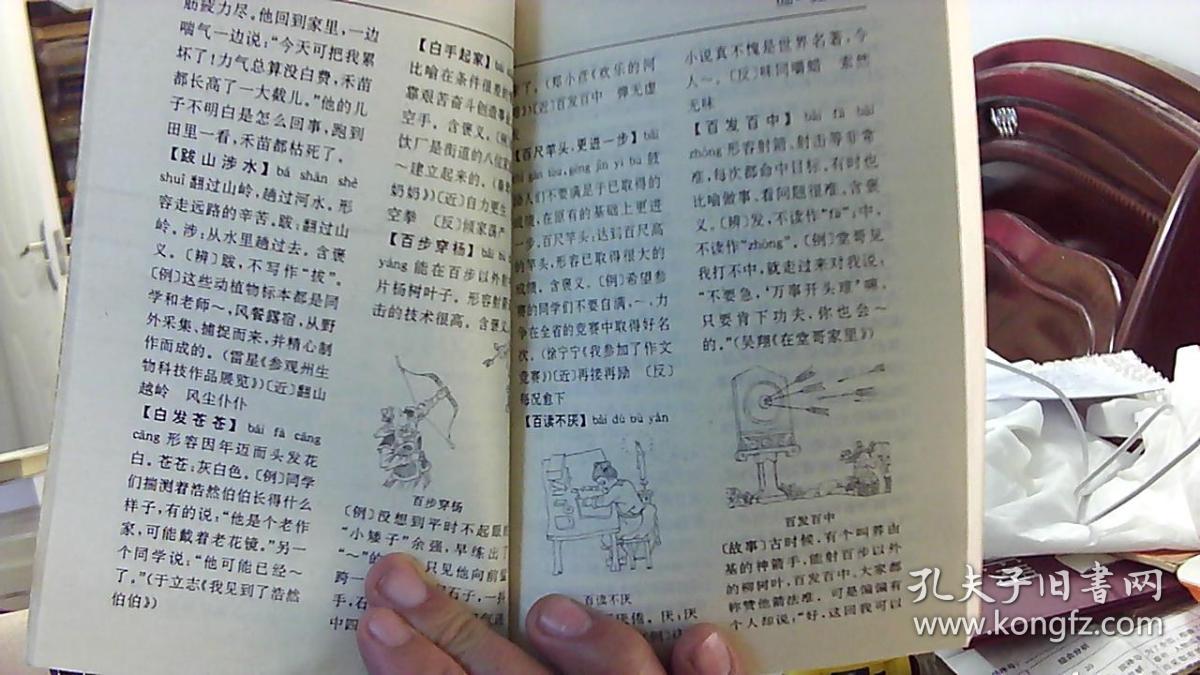 筋疲力尽。他回到家里，一边
喘气一边说：“今天可把我累
坏了！力气总算没白费，禾苗
都长高了一大截儿。”他的儿
子不明白是怎么回事，跑到
田里一看，禾苗都枯死了。
【跋山涉水】bá shān shè
shuǐ 翻过山岭，趟过河水。形
容走远路的辛苦。跋：翻过山
岭。涉：从水里趟过去。含褒
义。〔辨〕跋，不写作“拔”。
〔例〕这些动植物标本都是同
学和老师～，风餐露宿，从野
外采集、捕捉而来，并精心制
作而成的。（雷星《参观州生
物科技作品展览》）〔近〕翻山
越岭　风尘仆仆
【白发苍苍】bái fà cāng
cāng 形容因年迈而头发花
白。苍苍：灰白色。〔例〕同学
们揣测着浩然伯伯长得什么
样子，有的说：“他是个老作
家，可能戴着老花镜。”另一
个同学说：“他可能已经～
了。”（于立志《我见到了浩然
伯伯》）
【白手起家】bái
比喻在条件很差
靠艰苦奋斗创造事
空手。含褒义。
饮厂是街道的八位
～建立起来的。
奶奶》）〔近〕自力更生
空拳　〔反〕倾家荡产
【百步穿杨】bǎi bù
yáng 能在百步以外
片杨树叶子。形容射
击的技术很高。含褒义
百步穿杨
〔例〕没想到平时不起眼
“小矮子”余强，早练出了
“～”的
只见他向前
跨一
石子，一
手，石
中四
了。（郑小彦《欢乐的河
〔近〕百发百中　弹无虚
【百尺竿头，更进一步】bǎi
gān tóu, gèng jìn yí bù 鼓
人们不要满足于已取得的
成绩，在原有的基础上更进
一步。百尺竿头：达到百尺高
的竿头，形容已取得很大的
成绩。含褒义。〔例〕希望参
赛的同学们不要自满，～，力
争在全省的竞赛中取得好名
次。（徐宁宁《我参加了作文
竞赛》）〔近〕再接再励　〔反〕
每况愈下
【百读不厌】bǎi dú bù yàn
百读不厌
厌倦。厌：厌
小说真不愧是世界名著，令
人～。〔反〕味同嚼蜡　索然
无味
【百发百中】bǎi fā bǎi
zhòng 形容射箭、射击等非常
准，每次都命中目标。有时也
比喻做事、看问题很准。含褒
义。〔辨〕发，不读作“fà”；中，
不读作“zhōng”。〔例〕堂哥见
我打不中，就走过来对我说：
“不要急，‘万事开头难’嘛，
只要肯下功夫，你也会～
的。”（吴翔《在堂哥家里》）
百发百中
〔故事〕古时候，有个叫养由
基的神箭手，能射百步以外
的柳树叶，百发百中。大家都
称赞他箭法准。可是偏偏有
个人却说：“好，这回我可以
孔夫子旧书网
www.kongfz.com